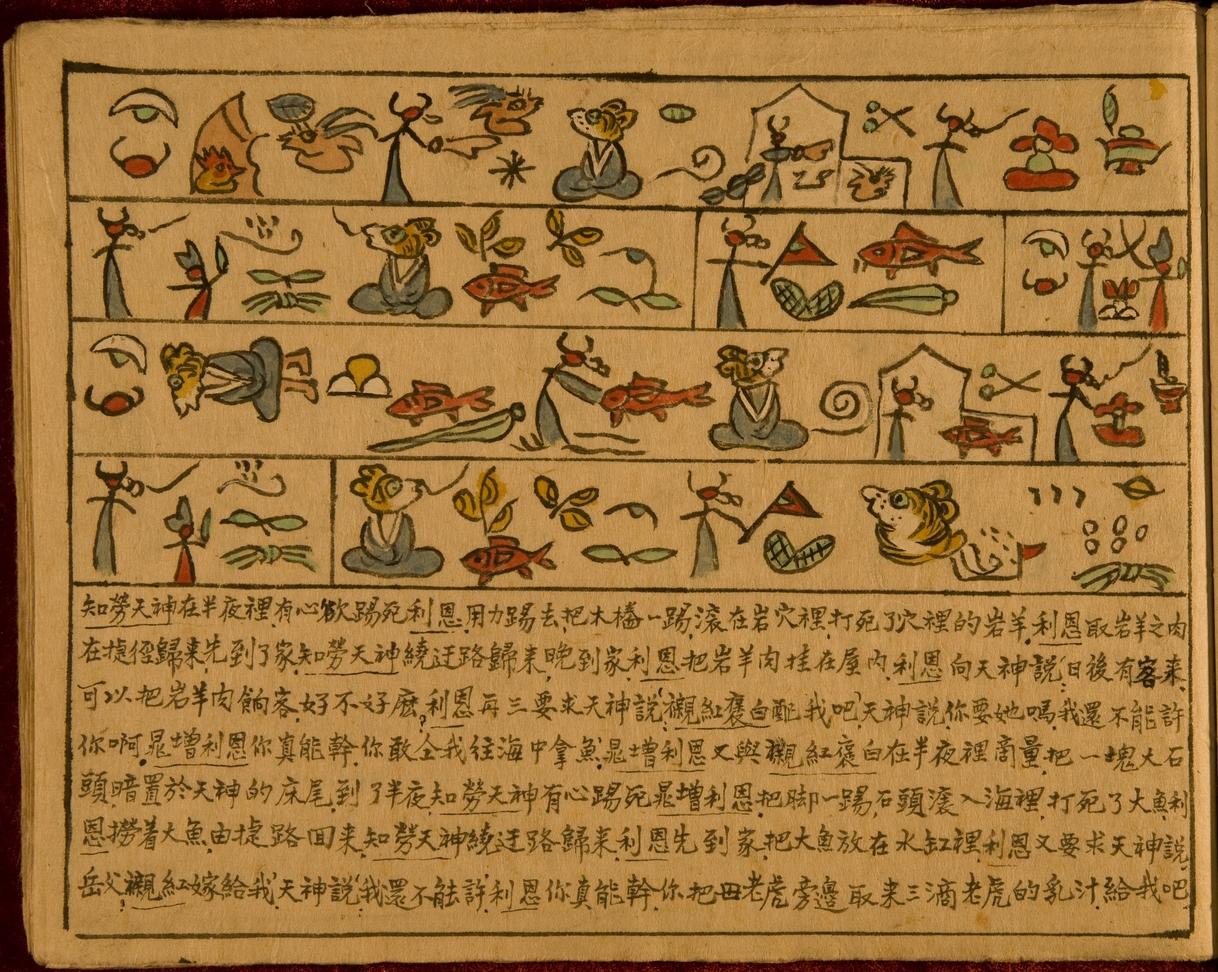 知勞天神在半夜裡有心欲踢死利恩.用力踢去把木樁一踢滾在岩穴裡打死了穴裡的岩羊.利恩取岩羊之肉
在捷徑歸来先到了家知勞天神繞迂路歸来晚到家利恩把岩羊肉挂在屋内利恩向天神説日後有客来.
可以把岩羊肉餉客.好不好麽利恩再三要求天神説襯紅褒白配我吧天神説你要她嗎我還不能許
你啊晁增利恩你真能幹你敢仝我往海中拿魚晁増利恩又與襯紅褒白在半夜裡商量把一塊大石
頭暗置於天神的床尾到了半夜知勞天神有心踢死晁増利恩把脚一踢石頭滾入海裡打死了大魚利
恩撈着大魚由捷路回来知勞天神繞迂路歸来利恩先到家把大魚放在水缸裡利恩又要求天神説
岳父襯紅嫁給我天神説我還不能許利恩你真能幹你把母老虎旁邊取来三滴老虎的乳汁給我吧